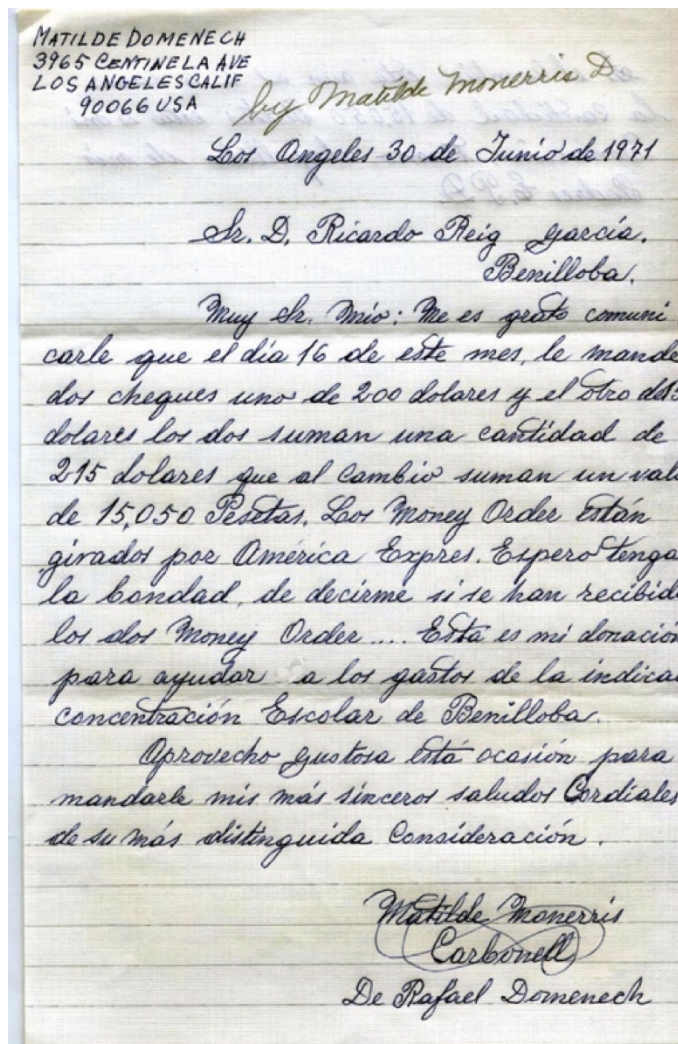 MATILDE DOMENECH
3965 CENTINELA AVE
LOS ANGELES CALIF
90066 USA
by Matilde Monerris D
Los Angeles 30 de Junio de 1971
Sr. D. Ricardo Reig García.
Benilloba.
Muy Sr. Mío: Me es grato comuni
carle que el día 16 de este mes, le mande
dos cheques uno de 200 dolares y el otro de 15
dolares los dos suman una cantidad de
215 dolares que al cambio suman un val
de 15,050 Pesetas. Los Money Order están
girados por América Expres. Espero tenga
la bondad, de decirme si se han recibid
los dos Money Order .... Está es mi donación
para ayudar a los gastos de la indica
concentración Escolar de Benilloba.
Aprovecho gustosa está ocasión para
mandarle mis más sinceros saludos Cordiales
de su más distinguida Consideración.
Matilde Monerris
Carbonell
De Rafael Domenech